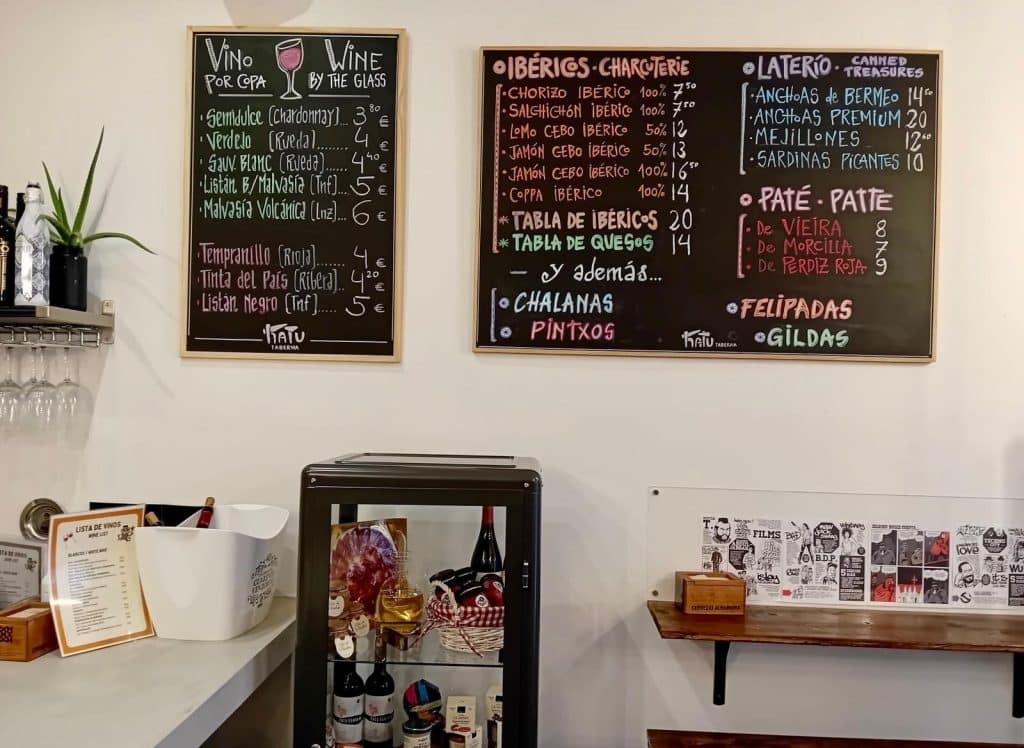 Vino WINE
POR COPA BY THE GLASS
· Semidulce (Chardonnay)... 3,80 €
· Verdejo (Rueda)... 4 €
· Sauv. Blanc (Rueda)... 4,40 €
· Listán B/Malvasía (Tnf)... 5 €
· Malvasía Volcánica (Lnz)... 6 €
· Tempranillo (Rioja)... 4 €
· Tinta del País (Ribera)... 4,20 €
· Listán Negro (Tnf)...... 5 €
KATU
TABERNA
IBÉRICOS · CHARCUTERIE
· CHORIZO IBÉRICO 100% 7,50
· SALCHICHÓN IBÉRICO 100% 7,50
· LOMO CEBO IBÉRICO 50% 12
· JAMÓN CEBO IBÉRICO 50% 13
· JAMÓN CEBO IBÉRICO 100% 16,50
· COPPA IBÉRICO 100% 14
* TABLA DE IBÉRICOS 20
* TABLA DE QUESOS 14
— y además...
CHALANAS
PINTXOS
LATERÍO · CANNED
TREASURES
· ANCHOAS de BERMEO 14,50
· ANCHOAS PREMIUM 20
· MEJILLONES 12,60
· SARDINAS PICANTES 10
PATÉ · PATTE
· De VIEIRA 8
· De MORCILLA 7
· De PERDIZ ROJA 9
FELIPADAS
GILDAS
KATU TABERNA
LISTA DE VINOS
WINE LIST
FILMS
B.D.P.
love
WU